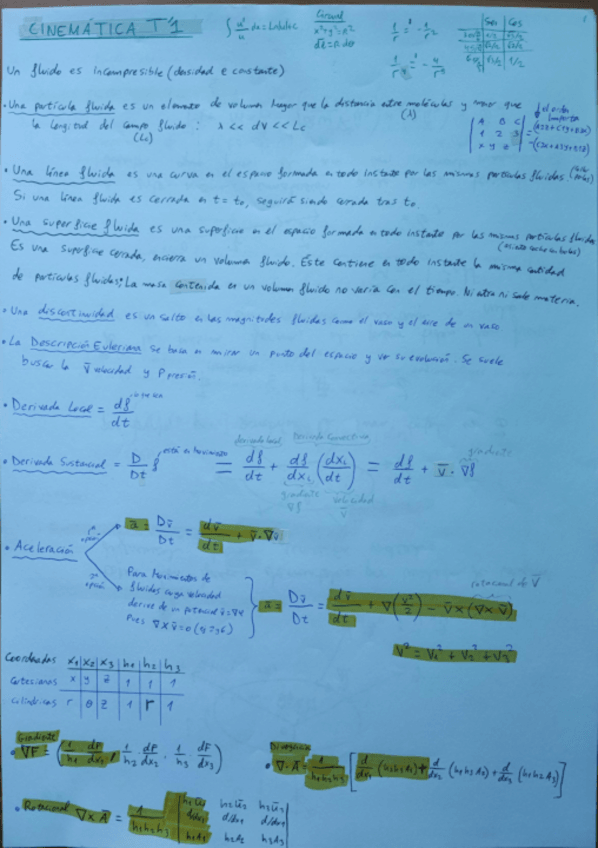 CINEMÁTICA T1
∫ u'/u dx = Ln|u|+c
x²+y²=R²
1/r ' = -1/r²
Sen Cos
Un fluido es incompresible (densidad e constante)
· Una partícula fluida es un elemento de volumen mayor que la distancia entre moléculas y menor que
(λ)
la longitud del campo fluido : λ << dV << Lc
(Lc)
el orden importa
A B C
1 2 3
x y z
· Una línea fluida es una curva en el espacio formada en todo instante por las mismas partículas fluidas
Si una línea fluida es cerrada en t = t₀, seguirá siendo cerrada tras t₀.
· Una superficie fluida es una superficie en el espacio formada en todo instante por las mismas partículas fluidas
Es una superficie cerrada, encierra un volumen fluido. Este contiene en todo instante la misma cantidad
de partículas fluidas; La masa contenida en un volumen fluido no varía con el tiempo. Ni entra ni sale materia.
· Una discontinuidad es un salto en las magnitudes fluidas como el vaso y el aire de un vaso
· La Descripción Euleriana se basa en mirar un punto del espacio y ver su evolución. Se suele
buscar la v̄ velocidad y P presión.
· Derivada Local = df/dt
derivada local derivada convectiva
· Derivada Sustancial = D/Dt f = df/dt + df/dxᵢ (dxᵢ/dt) = df/dt + v̄ · ∇f
está en movimiento
gradiente
gradiente ∇f velocidad v̄
1ª opción
ā = Dv̄/Dt = dv̄/dt + v̄·∇v̄
· Aceleración
2ª opción
Para movimientos de
fluidos cuya velocidad
derive de un potencial v̄ = ∇φ
Pues ∇×v̄ = 0
rotacional de v̄
ā = Dv̄/Dt = dv̄/dt + ∇(v²/2) - v̄ × (∇ × v̄)
V² = V₁² + V₂² + V₃²
Coordenadas x₁ x₂ x₃ h₁ h₂ h₃
Cartesianas x y z 1 1 1
Cilíndricas r θ z 1 r 1
Gradiente
· ∇F = (1/h₁ dF/dx₁, 1/h₂ · dF/dx₂, 1/h₃ · dF/dx₃)
Divergencia
· ∇·Ā = 1/h₁h₂h₃ [d/dx₁ (h₂h₃A₁) + d/dx₂ (h₁h₃A₂) + d/dx₃ (h₁h₂A₃)]
· Rotacional ∇×Ā = 1/h₁h₂h₃
h₁ū₁ h₂ū₂ h₃ū₃
d/dx₁ d/dx₂ d/dx₃
h₁A₁ h₂A₂ h₃A₃